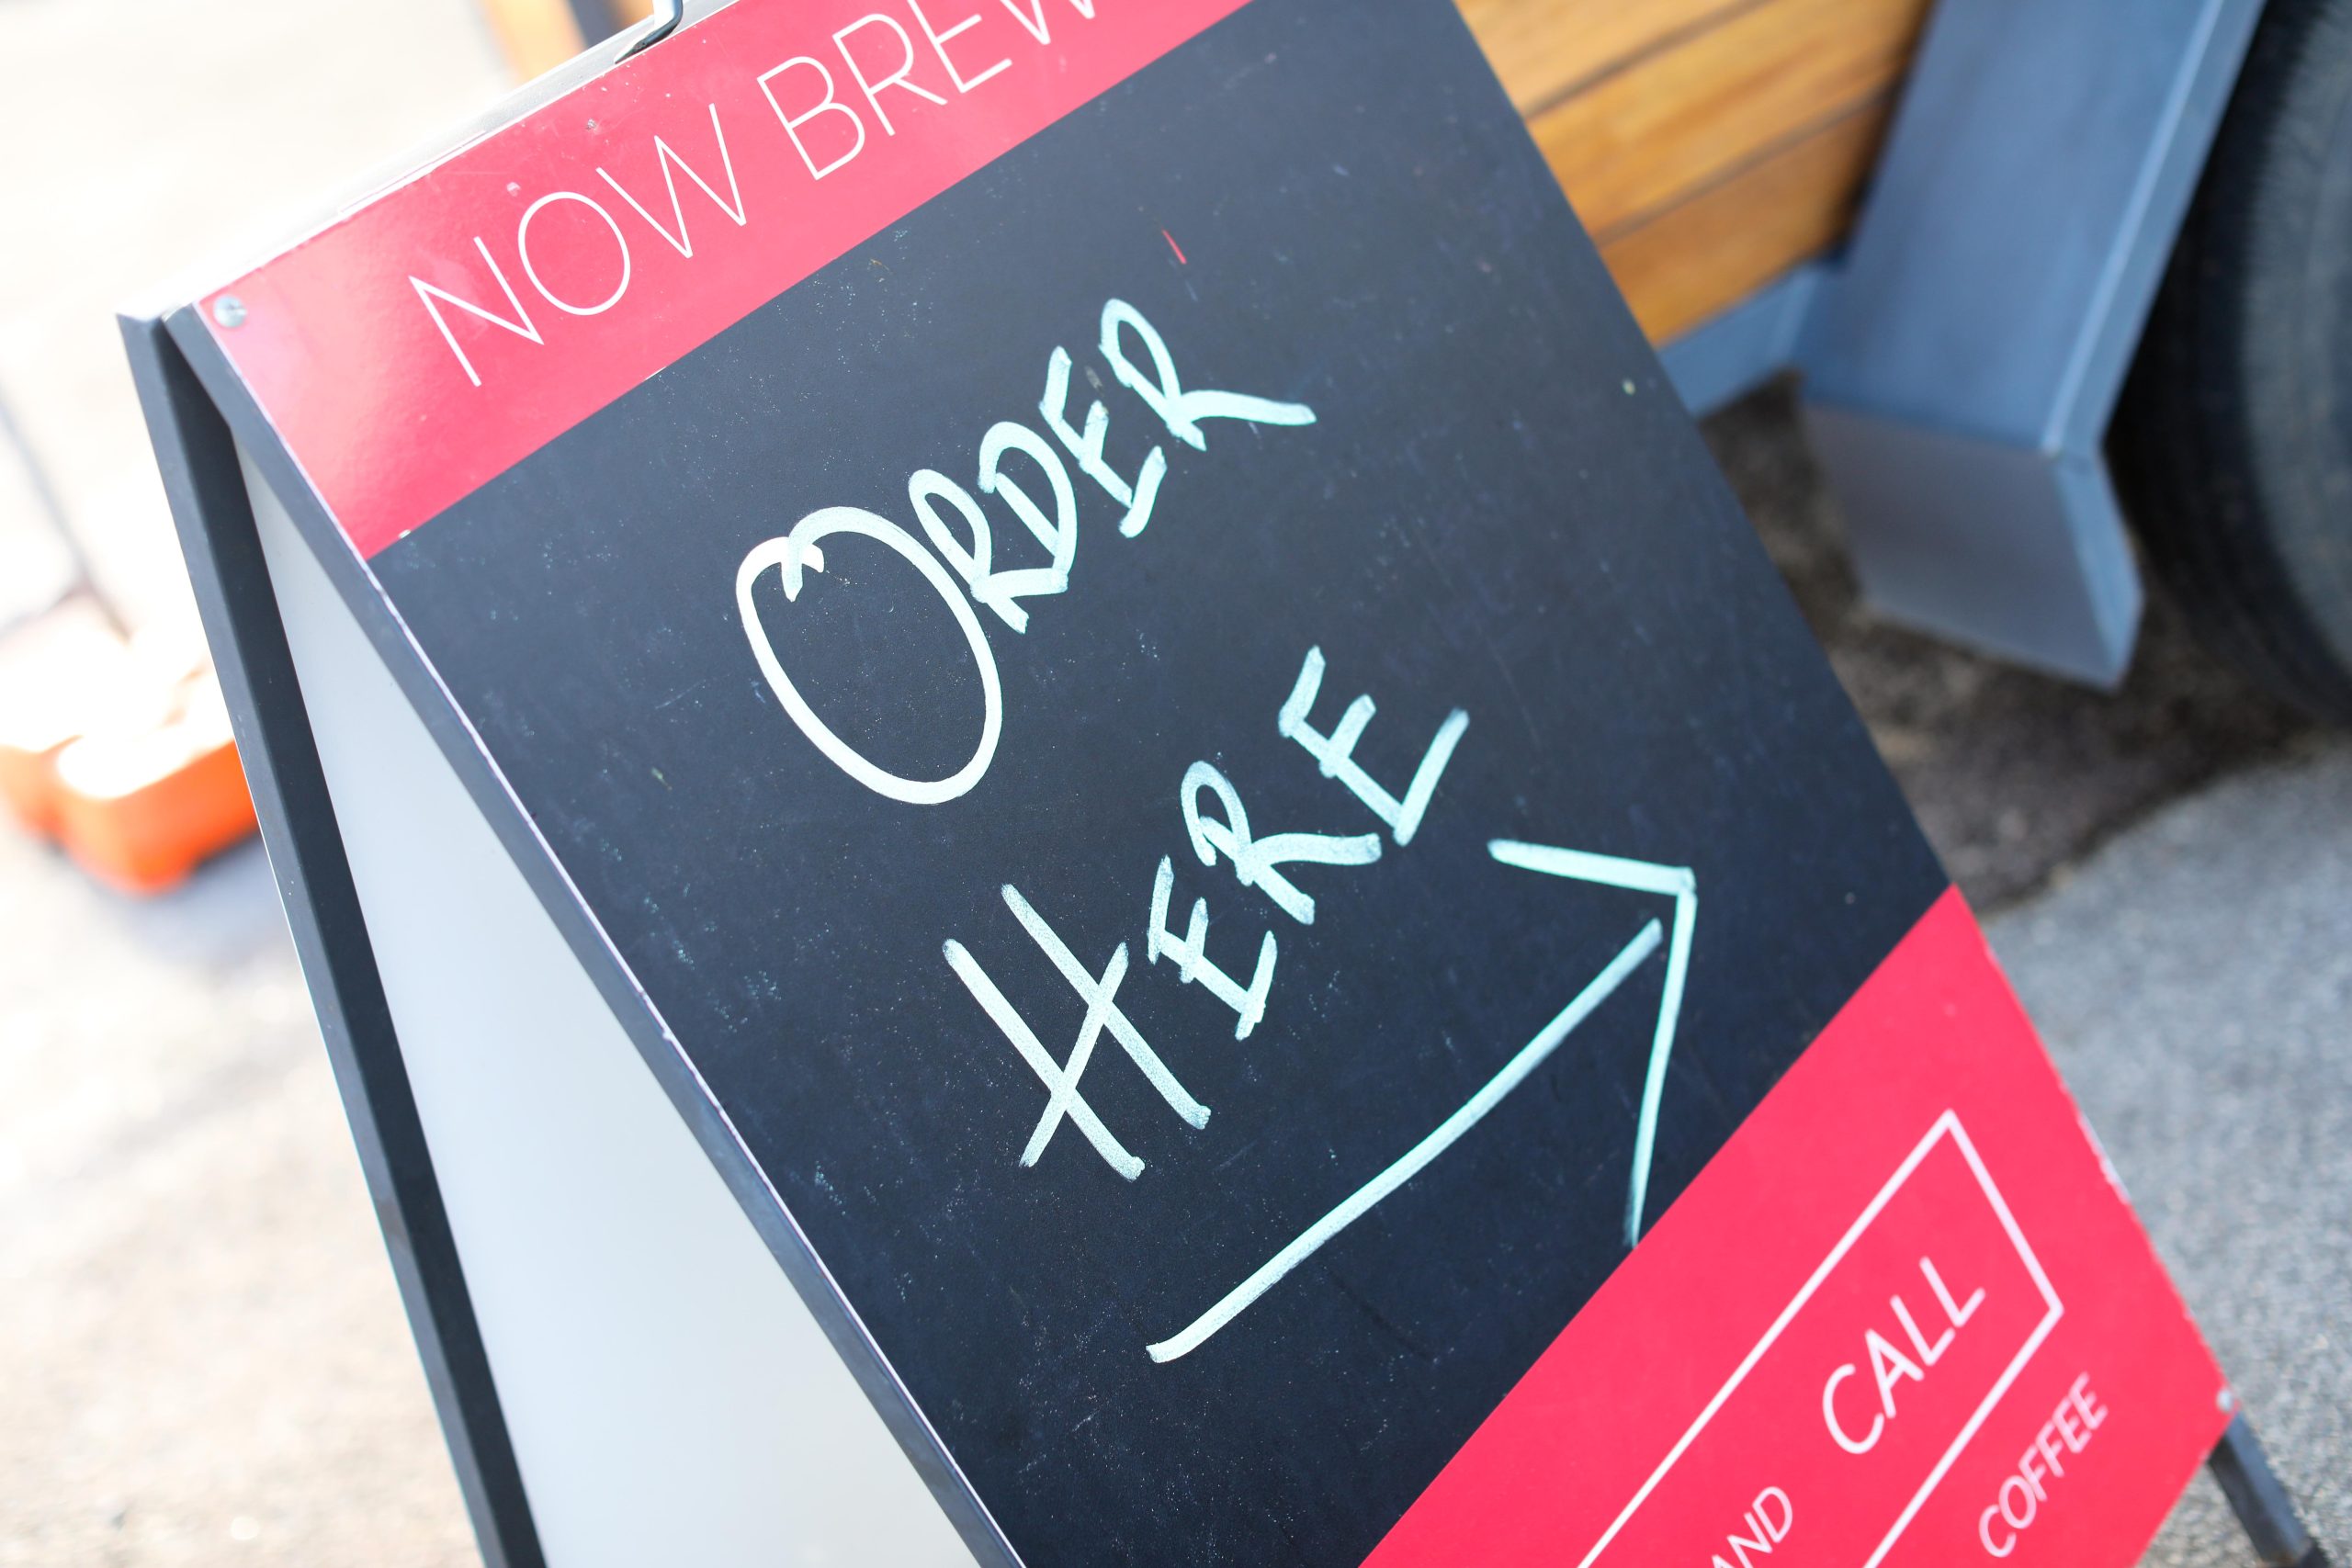 NOW BREW
ORDER
HERE
AND CALL
COFFEE